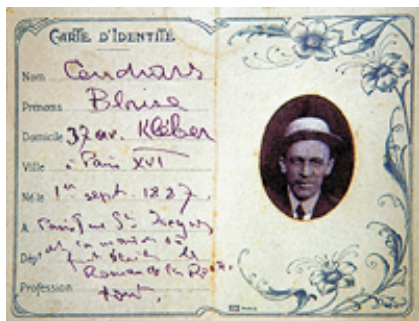 CARTE D'IDENTITÉ
Nom Cendrars
Prénoms Blaise
Domicile 37 av. Kléber
Ville à Paris XVI
Né le 1er sept. 1887
A Paris rue St. Jacques
et la maison où
Dépt fut écrit le
Roman de la Rose.
Profession